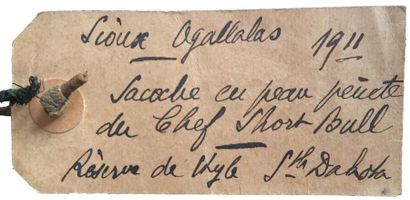 Sioux Ogallalas 1911
Sacoche en peau peinte
du Chef Short Bull
Réserve de Kyle Sth Dakota